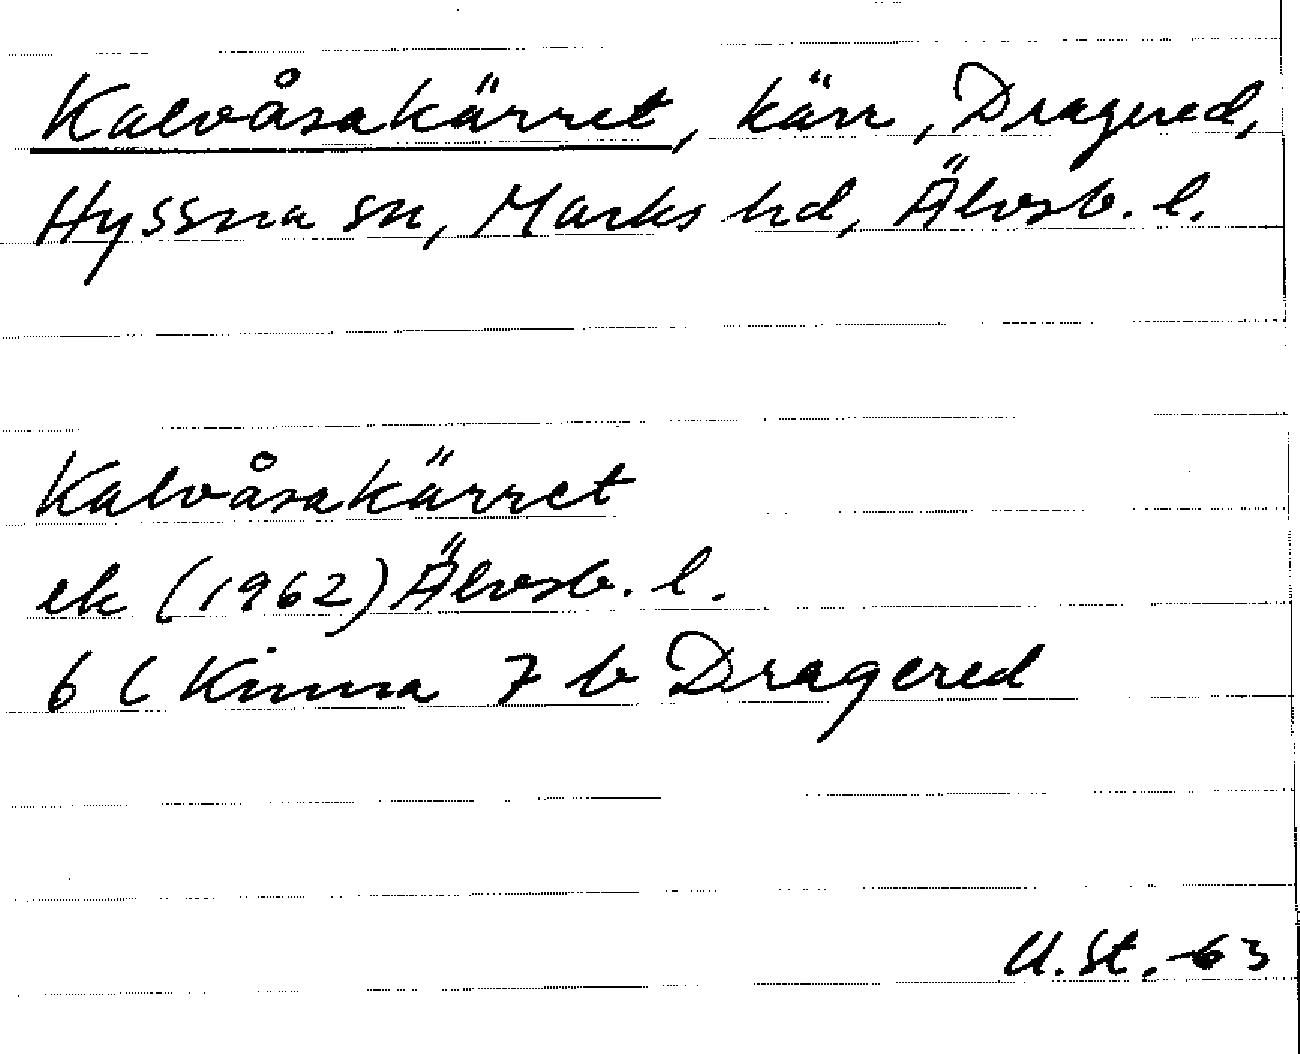 Kalvåsakärret, kärr, Dragered,
Hyssna sn, Marks hd, Älvsb. l.
Kalvåsakärret
ek (1962) Älvsb. l.
6 C Kinna 7 b Dragered
U. St. -63